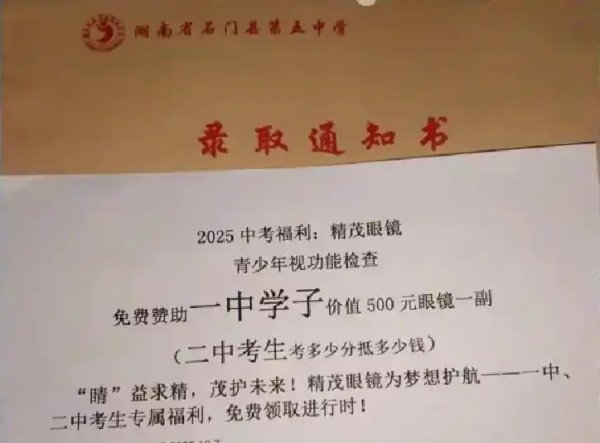 湖南省石门县第五中学
录取通知书
2025 中考福利：精茂眼镜
青少年视功能检查
免费赞助一中学子价值 500 元眼镜一副
（二中考生考多少分抵多少钱）
“睛”益求精，茂护未来！精茂眼镜为梦想护航——一中、
二中考生专属福利，免费领取进行时！